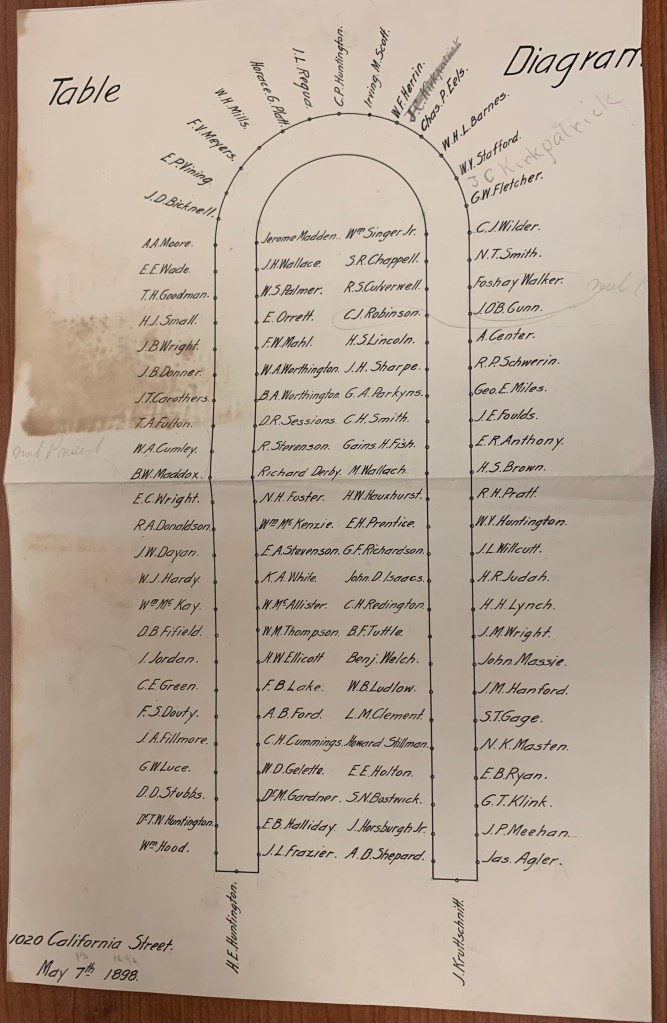 Table
Diagram
J.D.Bicknell.
E.P.Vining.
F.V.Meyers.
W.H.Mills.
Horace G.Platt.
I.L.Requa.
C.P.Huntington.
Irving M.Scott.
W.F.Herrin.
J.C.Kirkpatrick
Chas.P.Eels.
W.H.L.Barnes.
W.V.Stafford.
J C Kirkpatrick
G.W.Fletcher.
A.A.Moore.
E.E.Wade.
T.H.Goodman.
H.J.Small.
J.B.Wright.
J.B.Donner.
J.T.Carothers.
T.A.Fulton.
W.A.Cumley.
not Present
B.W.Maddox.
E.C.Wright.
R.A.Donaldson.
J.W.Dayan.
W.J.Hardy.
Wm Mc Kay.
D.B.Fifield.
I.Jordan.
C.E.Green.
F.S.Douty.
J.A.Fillmore.
G.W.Luce.
D.D.Stubbs.
Dr T.W.Huntington.
Wm Hood.
Jerome Madden.
J.H.Wallace.
W.S.Palmer.
E.Orrett.
F.W.Mahl.
W.A.Worthington.
B.A.Worthington.
D.R.Sessions.
R.Stevenson.
Richard Derby.
N.H.Foster.
Wm Mc Kenzie.
E.A.Stevenson.
K.A.White.
W.McAllister.
W.M.Thompson.
H.W.Ellicott
F.B.Lake.
A.B.Ford.
C.H.Cummings.
W.D.Gelette.
Dr M.Gardner.
E.B.Halliday.
J.L.Frazier.
Wm Singer Jr.
S.R.Chappell.
R.S.Culverwell.
C.J.Robinson.
H.S.Lincoln.
J.H.Sharpe.
G.A.Parkyns.
C.H.Smith.
Gains.H.Fish.
M.Wallach.
H.W.Hauxhurst.
E.H.Prentice.
G.F.Richardson.
John.D.Isaacs.
C.H.Redington.
B.F.Tuttle.
Benj.Welch.
W.B.Ludlow.
L.M.Clement.
Howard Stillman.
E.E.Holton.
S.N.Bostwick.
J.Horsburgh Jr.
A.D.Shepard.
C.J.Wilder.
N.T.Smith.
Foshay Walker.
J.O'B.Gunn.
A.Center.
R.P.Schwerin.
Geo.E.Miles.
J.E.Foulds.
E.R.Anthony.
H.S.Brown.
R.H.Pratt.
W.V.Huntington.
J.L.Willcutt.
H.R.Judah.
H.H.Lynch.
J.M.Wright.
John.Massie.
J.M.Hanford.
S.T.Gage.
N.K.Masten.
E.B.Ryan.
G.T.Klink.
J.P.Meehan.
Jas.Agler.
H.E.Huntington.
J.Kruttschnitt.
1020 California Street.
May 7th 1898.